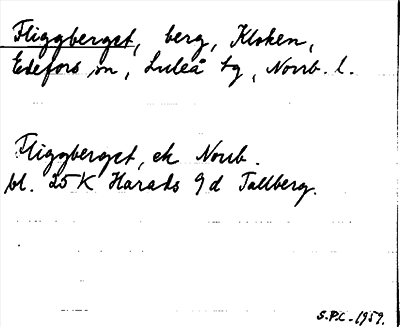 Fliggberget, berg, Kloken,
Edefors sn, Luleå tg, Norrb. l.
Fliggberget, ek Norrb.
bl. 25K Harads 9d Tallberg.
S.P.C. -1959.